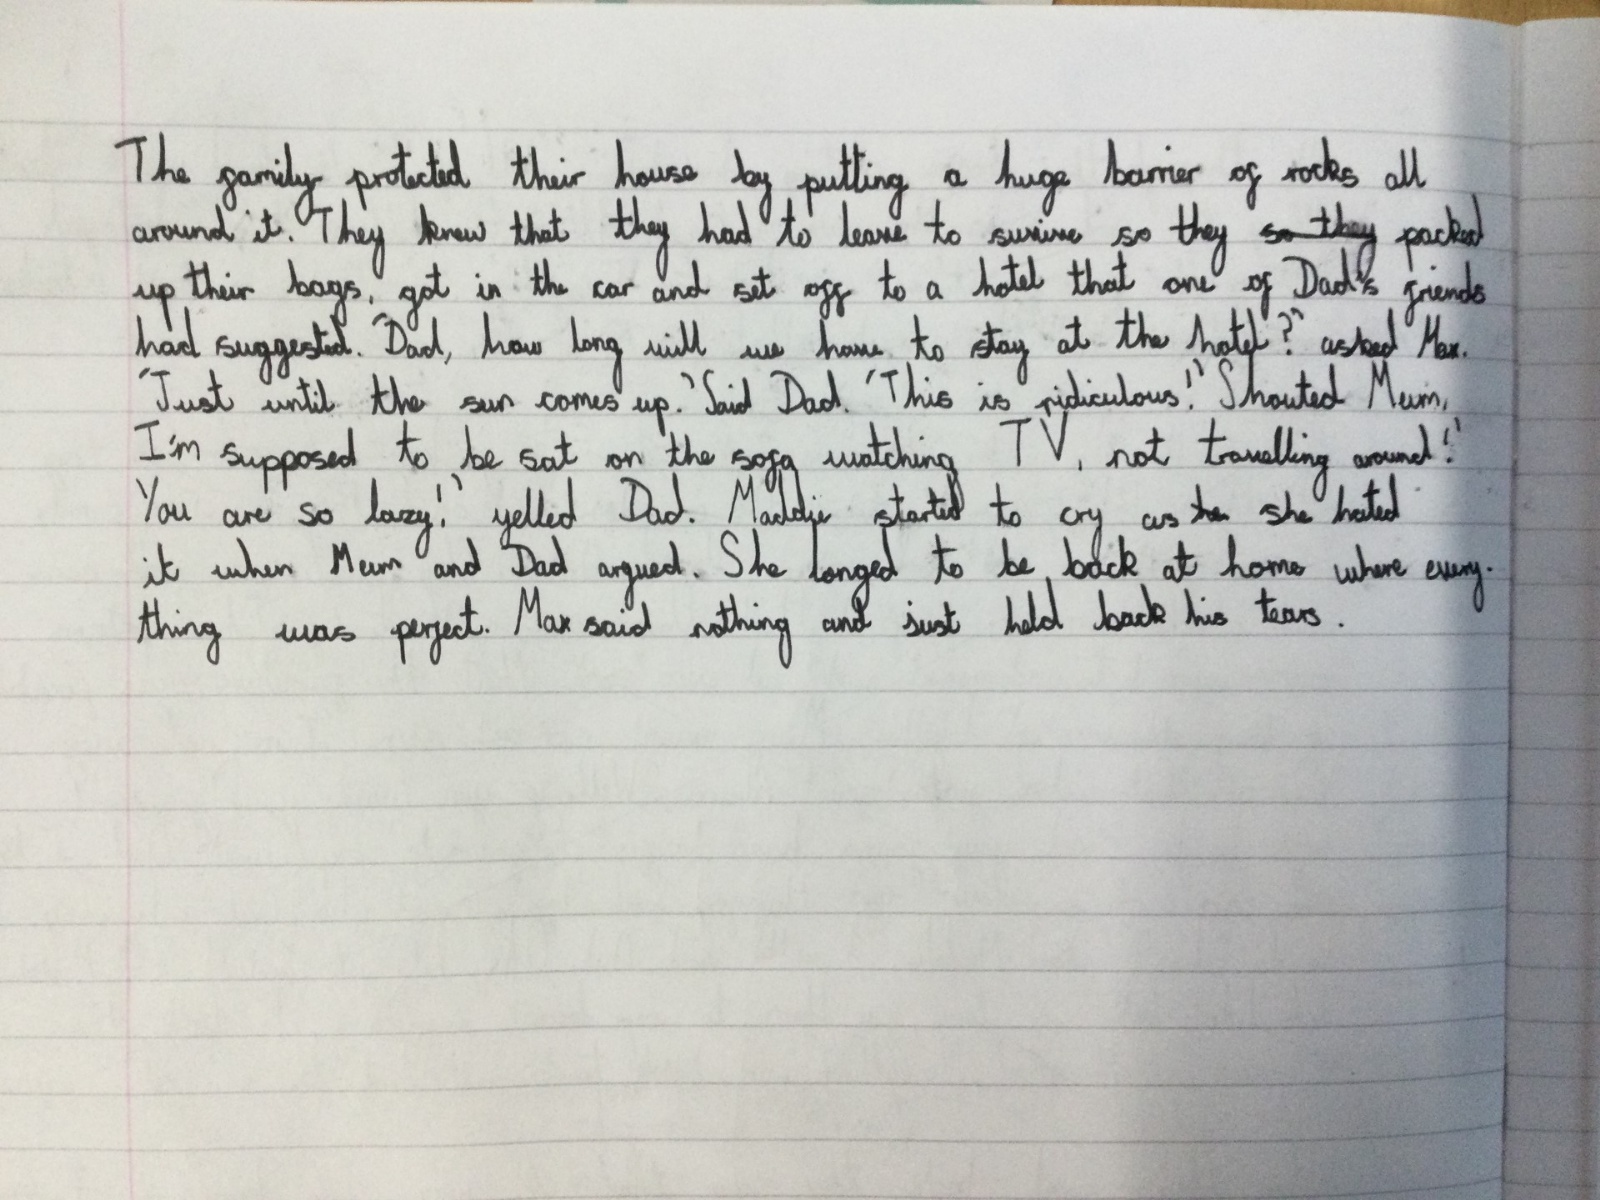 The family protected their house by putting a huge barrier of rocks all
around it. They knew that they had to leave to survive so they so they packed
up their bags, got in the car and set off to a hotel that one of Dad's friends
had suggested. "Dad, how long will we have to stay at the hotel?" asked Max.
"Just until the sun comes up." Said Dad. "This is ridiculous!" Shouted Mum,
I'm supposed to be sat on the sofa watching TV, not travelling around!"
"You are so lazy!" yelled Dad. Maddie started to cry as she hated
it when Mum and Dad argued. She longed to be back at home where every-
thing was perfect. Max said nothing and just held back his tears.